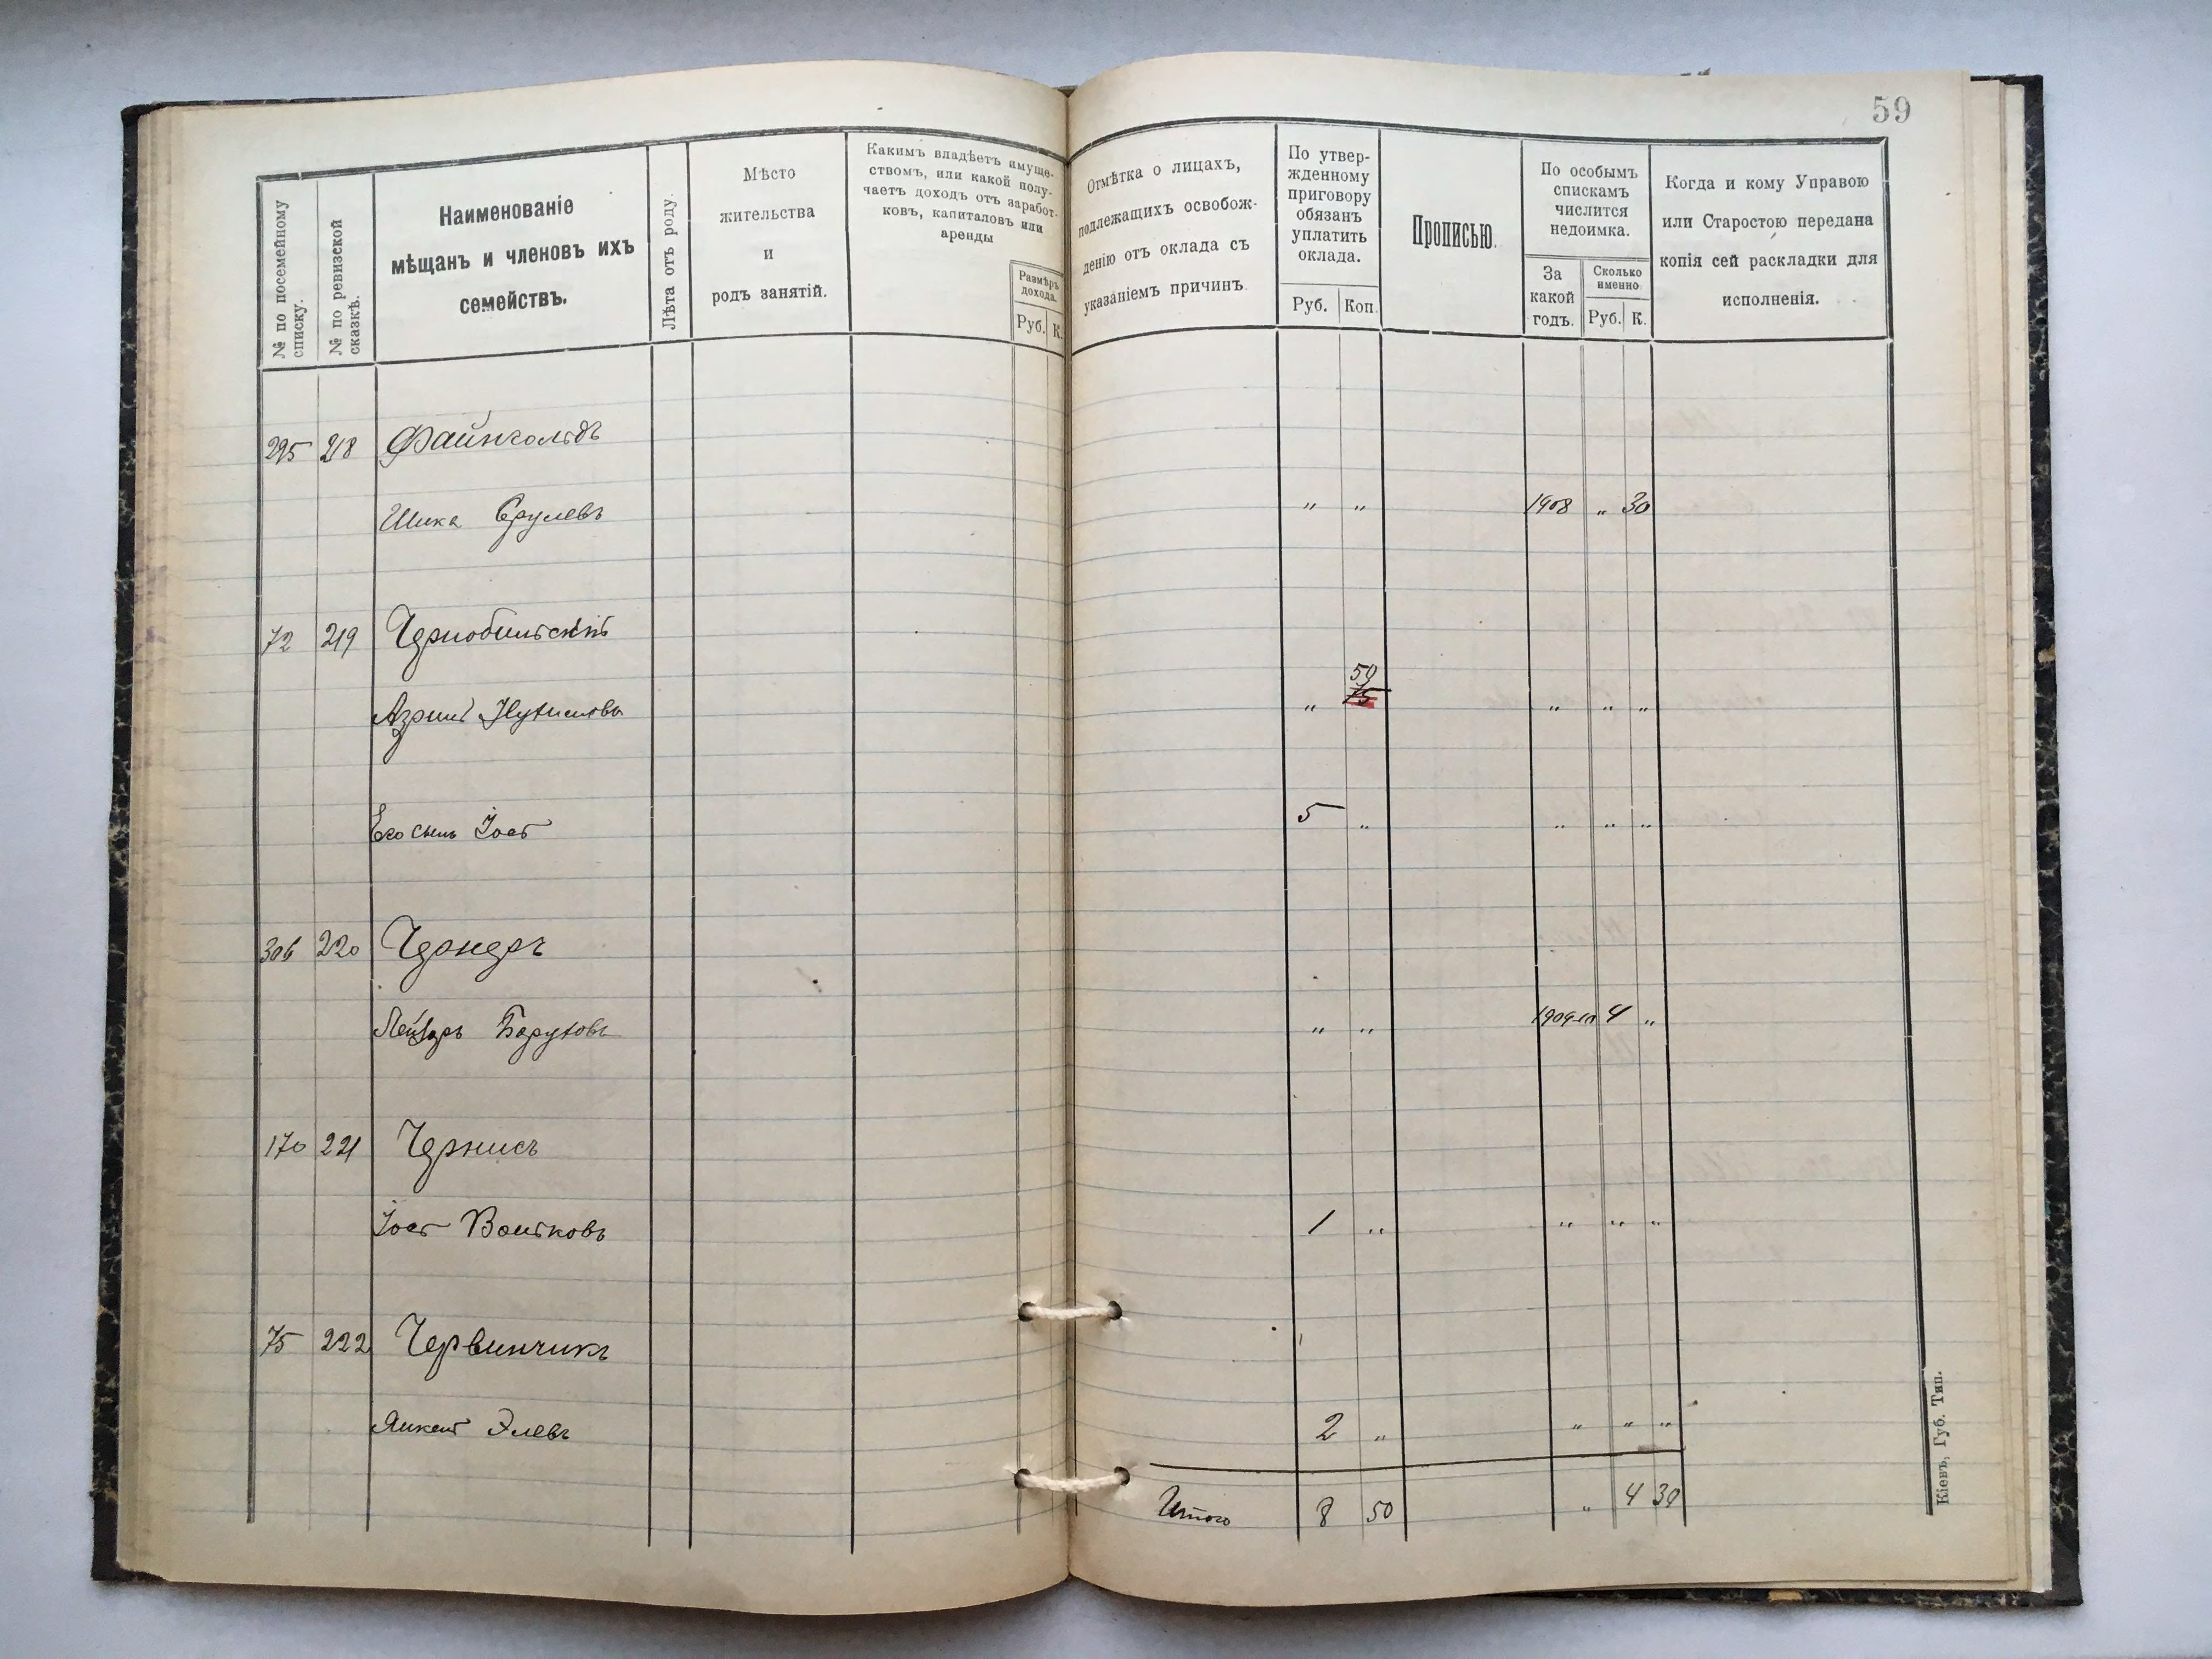 59
№ по посемейному списку.
№ по ревизской сказкѣ.
Наименованіе
мѣщанъ и членовъ ихъ
семействъ.
Лѣта отъ роду.
Мѣсто
жительства
и
родъ занятій.
Какимъ владѣетъ имуще-
ствомъ, или какой полу-
чаетъ доходъ отъ заработ-
ковъ, капиталовъ или
аренды
Размѣръ
дохода.
Руб. К.
Отмѣтка о лицахъ,
подлежащихъ освобож-
денію отъ оклада съ
указаніемъ причинъ
По утвер-
жденному
приговору
обязанъ
уплатить
оклада.
Руб. Коп.
Прописью.
По особымъ
спискамъ
числится
недоимка.
За
какой
годъ.
Сколько
именно
Руб. К.
Когда и кому Управою
или Старостою передана
копія сей раскладки для
исполненія.
295 218 Файнгольдъ
Шика Срулевъ " " 1908 " 30
72 219 Чернобыльскій
50
Азриль " 15 " " "
Его сынъ Іось 5 " " " "
306 220 Чернеръ
Лейзеръ Боруховъ " " 1909-10 4 "
170 221 Чернисъ
Іось Вольковъ 1 " " " "
75 222 Червинчикъ
Янкель Элевъ 2 " " " "
Итого 8 50 " 4 30
Кіевъ, Губ. Тип.